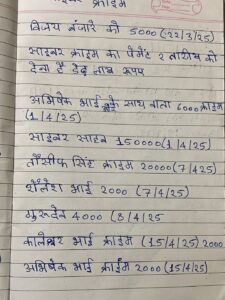 साइबर क्राइम
विजय बंजारे को 5000 (22/3/25)
साइबर क्राइम का पेमेंट 2 तारीख को
देना है डेढ़ लाख रूपय
अभिषेक भाई के साथ वाला 6000 क्राइम
(1/4/25)
साइबर साहब 150000 (1/4/25)
तौसीफ सिंह क्राइम 20000 (7/4/25)
शैलेश भाई 2000 (7/4/25)
गुरूदेव 4000 (8/4/25
कालेश्वर भाई क्राइम (15/4/25) 2000
अभिषेक भाई क्राईम 2000 (15/4/25)